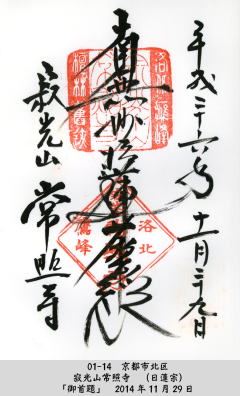 平成二十六年十一月二十九日
南無妙法蓮華経
寂光山 常照寺
洛北
鷹峰
01-14 京都市北区
寂光山常照寺 (日蓮宗)
「御首題」 2014年11月29日